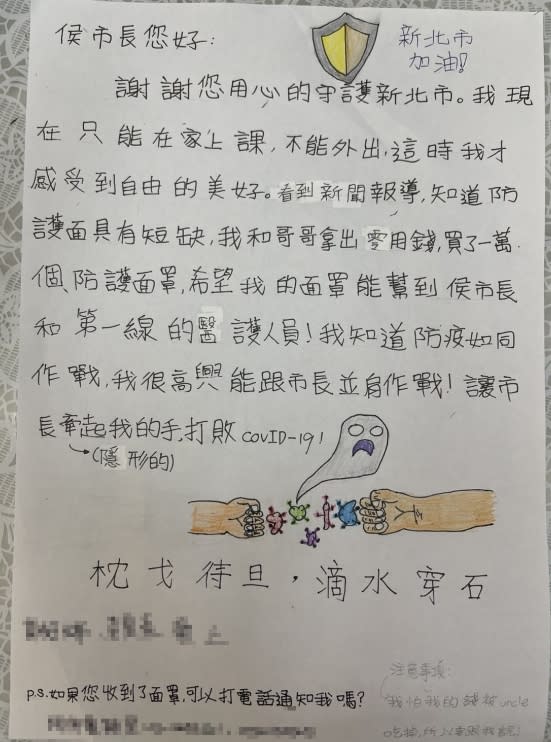 侯市長您好：
新北市
加油！
謝謝您用心的守護新北市。我現
在只能在家上課，不能外出，這時我才
感受到自由的美好。看到新聞報導，知道防
護面具有短缺，我和哥哥拿出零用錢，買了一萬
個防護面罩，希望我的面罩能幫到侯市長
和第一線的醫護人員！我知道防疫如同
作戰，我很高興能跟市長並肩作戰！讓市
長牽起我的手，打敗COVID-19！
(隱形的)
枕戈待旦，滴水穿石
p.s.如果您收到了面罩，可以打電話通知我嗎？
注意事項：
我怕我的錢被uncle
吃掉，所以要跟我說！